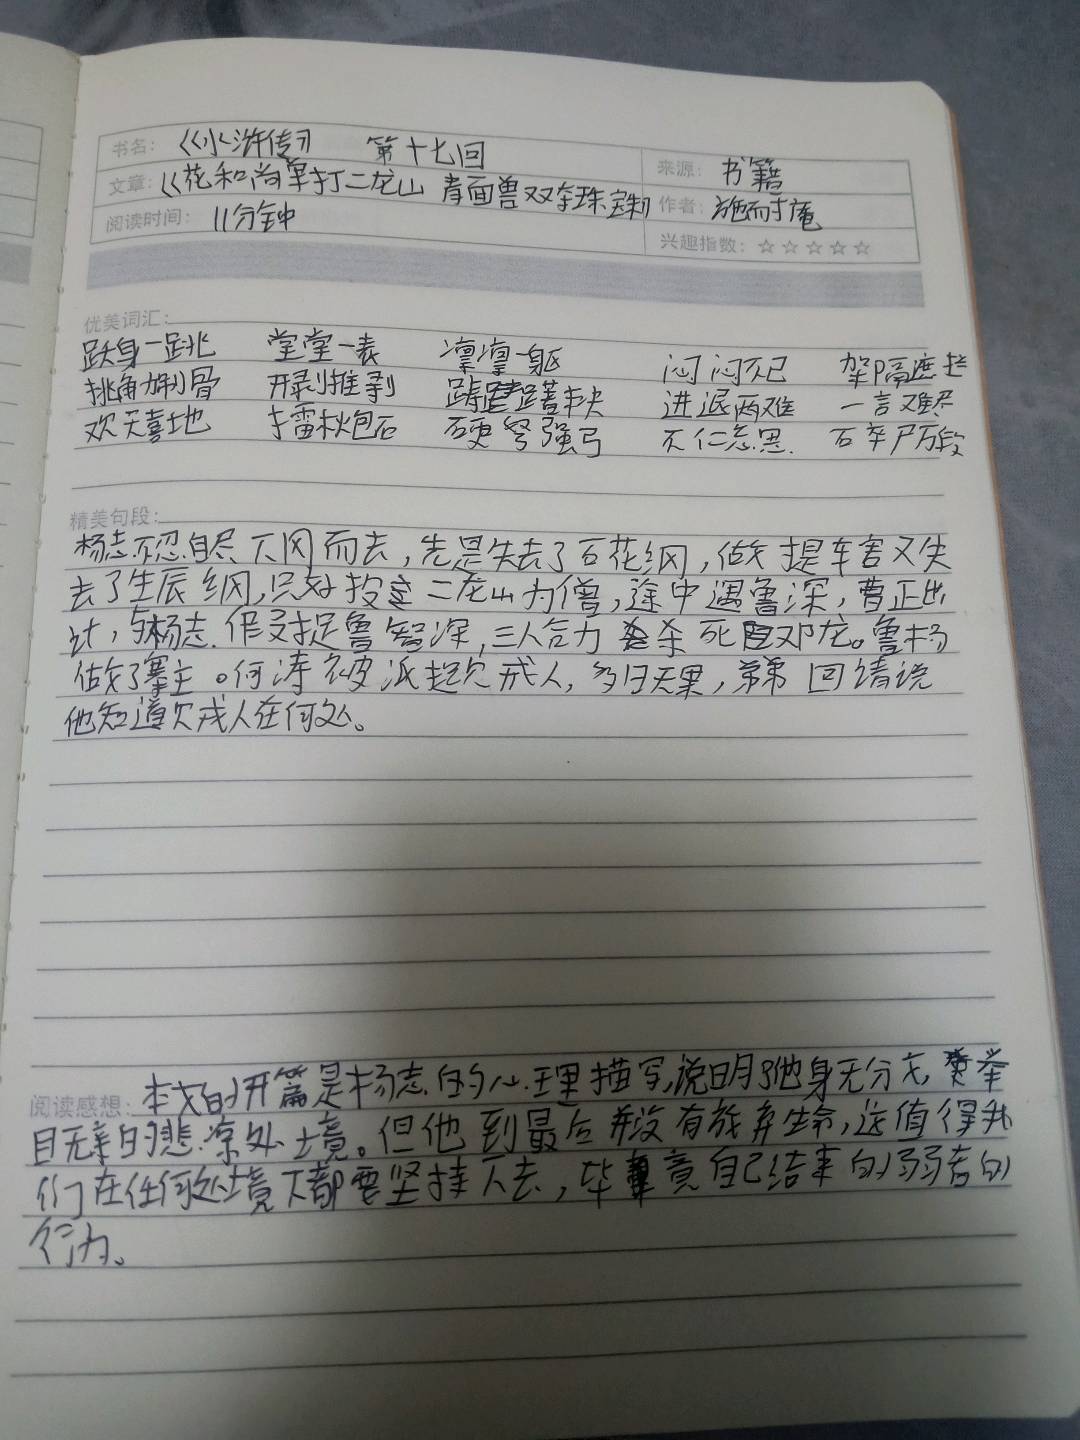 书名：《水浒传》 第十七回
来源：书籍
文章：《花和尚单打二龙山 青面兽双夺珠宝寺》
作者：施耐庵
阅读时间：11分钟
兴趣指数：☆☆☆☆☆
优美词汇：
跃身一跳 堂堂一表 凛凛一躯 闷闷不已 架隔遮拦
挑角剐骨 开剥推剥 进退两难 一言难尽
欢天喜地 擂木炮石 硬弩强弓 不仁忘恩
精美句段：
杨志不忍自尽下冈而去，先是失去了石花纲，做提车害又失
去了生辰纲，只好投定二龙山为僧，途中遇鲁深，曹正出
计，与杨志假意捉鲁智深，三人合力杀死邓龙。鲁杨
做了寨主。何涛被派起贼人，多日无果，弟弟回请说
他知道贼人在何处。
阅读感想：本文的开篇是杨志的心理描写，说明了他身无分文，举
目无亲的悲凉处境。但他到最后并没有放弃生命，这值得我
们在任何处境下都要坚持下去，毕竟自己结束的弱者的
行为。